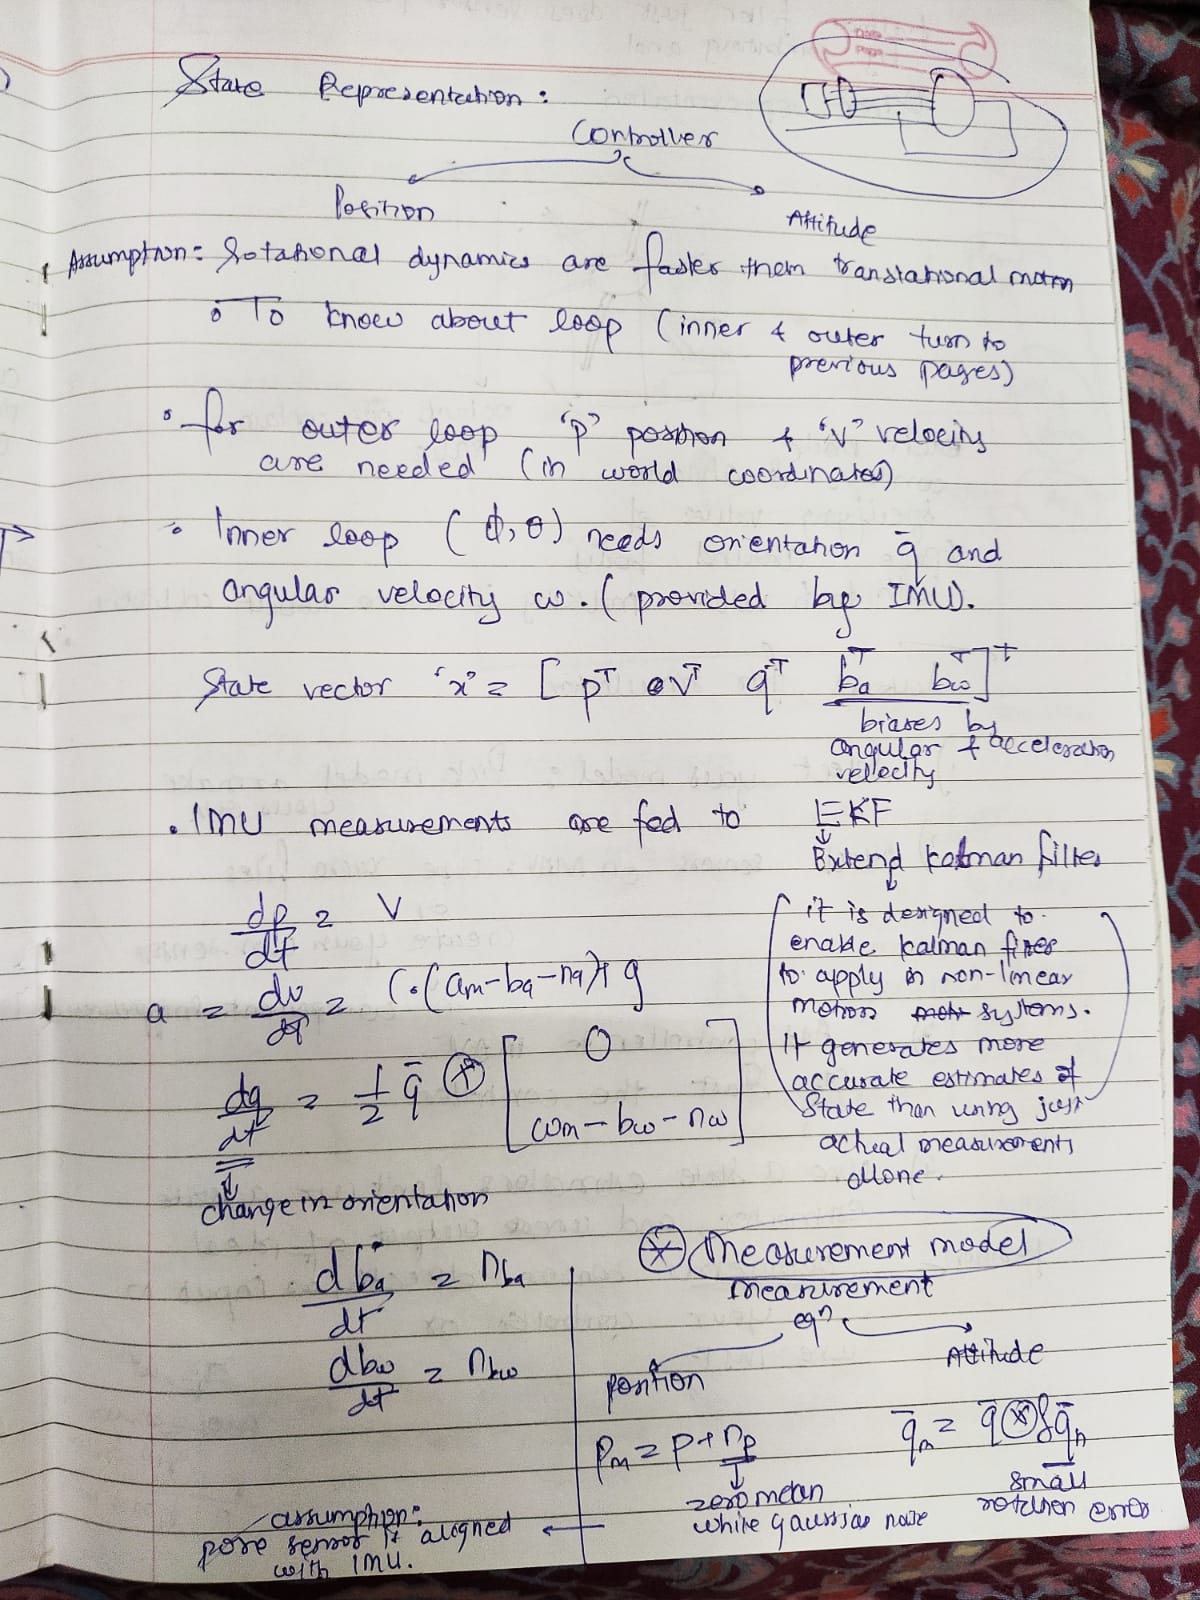 State Representation:
Controller
Position
Attitude
Assumption: Rotational dynamics are faster them translational motion
• To know about loop (inner & outer turn to
previous pages)
• for outer loop 'p' position & 'v' velocity
are needed (in world coordinates)
• Inner loop (ϕ, θ) needs orientation q̄ and
angular velocity ω. (provided by IMU).
State vector 'x' = [ pᵀ vᵀ q̄ᵀ bₐᵀ b_ωᵀ ]ᵀ
biases by
angular & acceleration
velocity
• IMU measurements are fed to EKF
Extend kalman filter
it is designed to
enable kalman filter
to apply in non-linear
motion systems.
It generates more
accurate estimates of
state than using just
actual measurements
allone.
dp/dt = v
a = dv/dt = C.(am-ba-na)+g
dq/dt = 1/2 q̄ ⊕ [ 0
ωm-bω-nω ]
change in orientation
dba/dt = nba
dbω/dt = nbω
⊛ Measurement model
measurement
eqⁿ
position
Attitude
Pm = P+np
q̄m = q̄ ⊗ δq̄n
zero mean
white gaussian noise
small
rotation error
assumption:
pose sensor is aligned
with IMU.